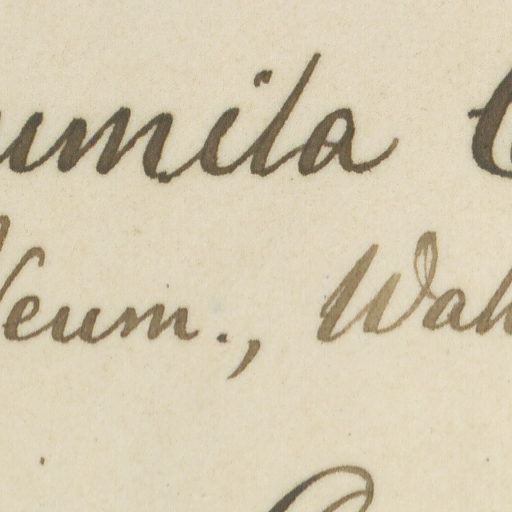 umila
Neum., Wah